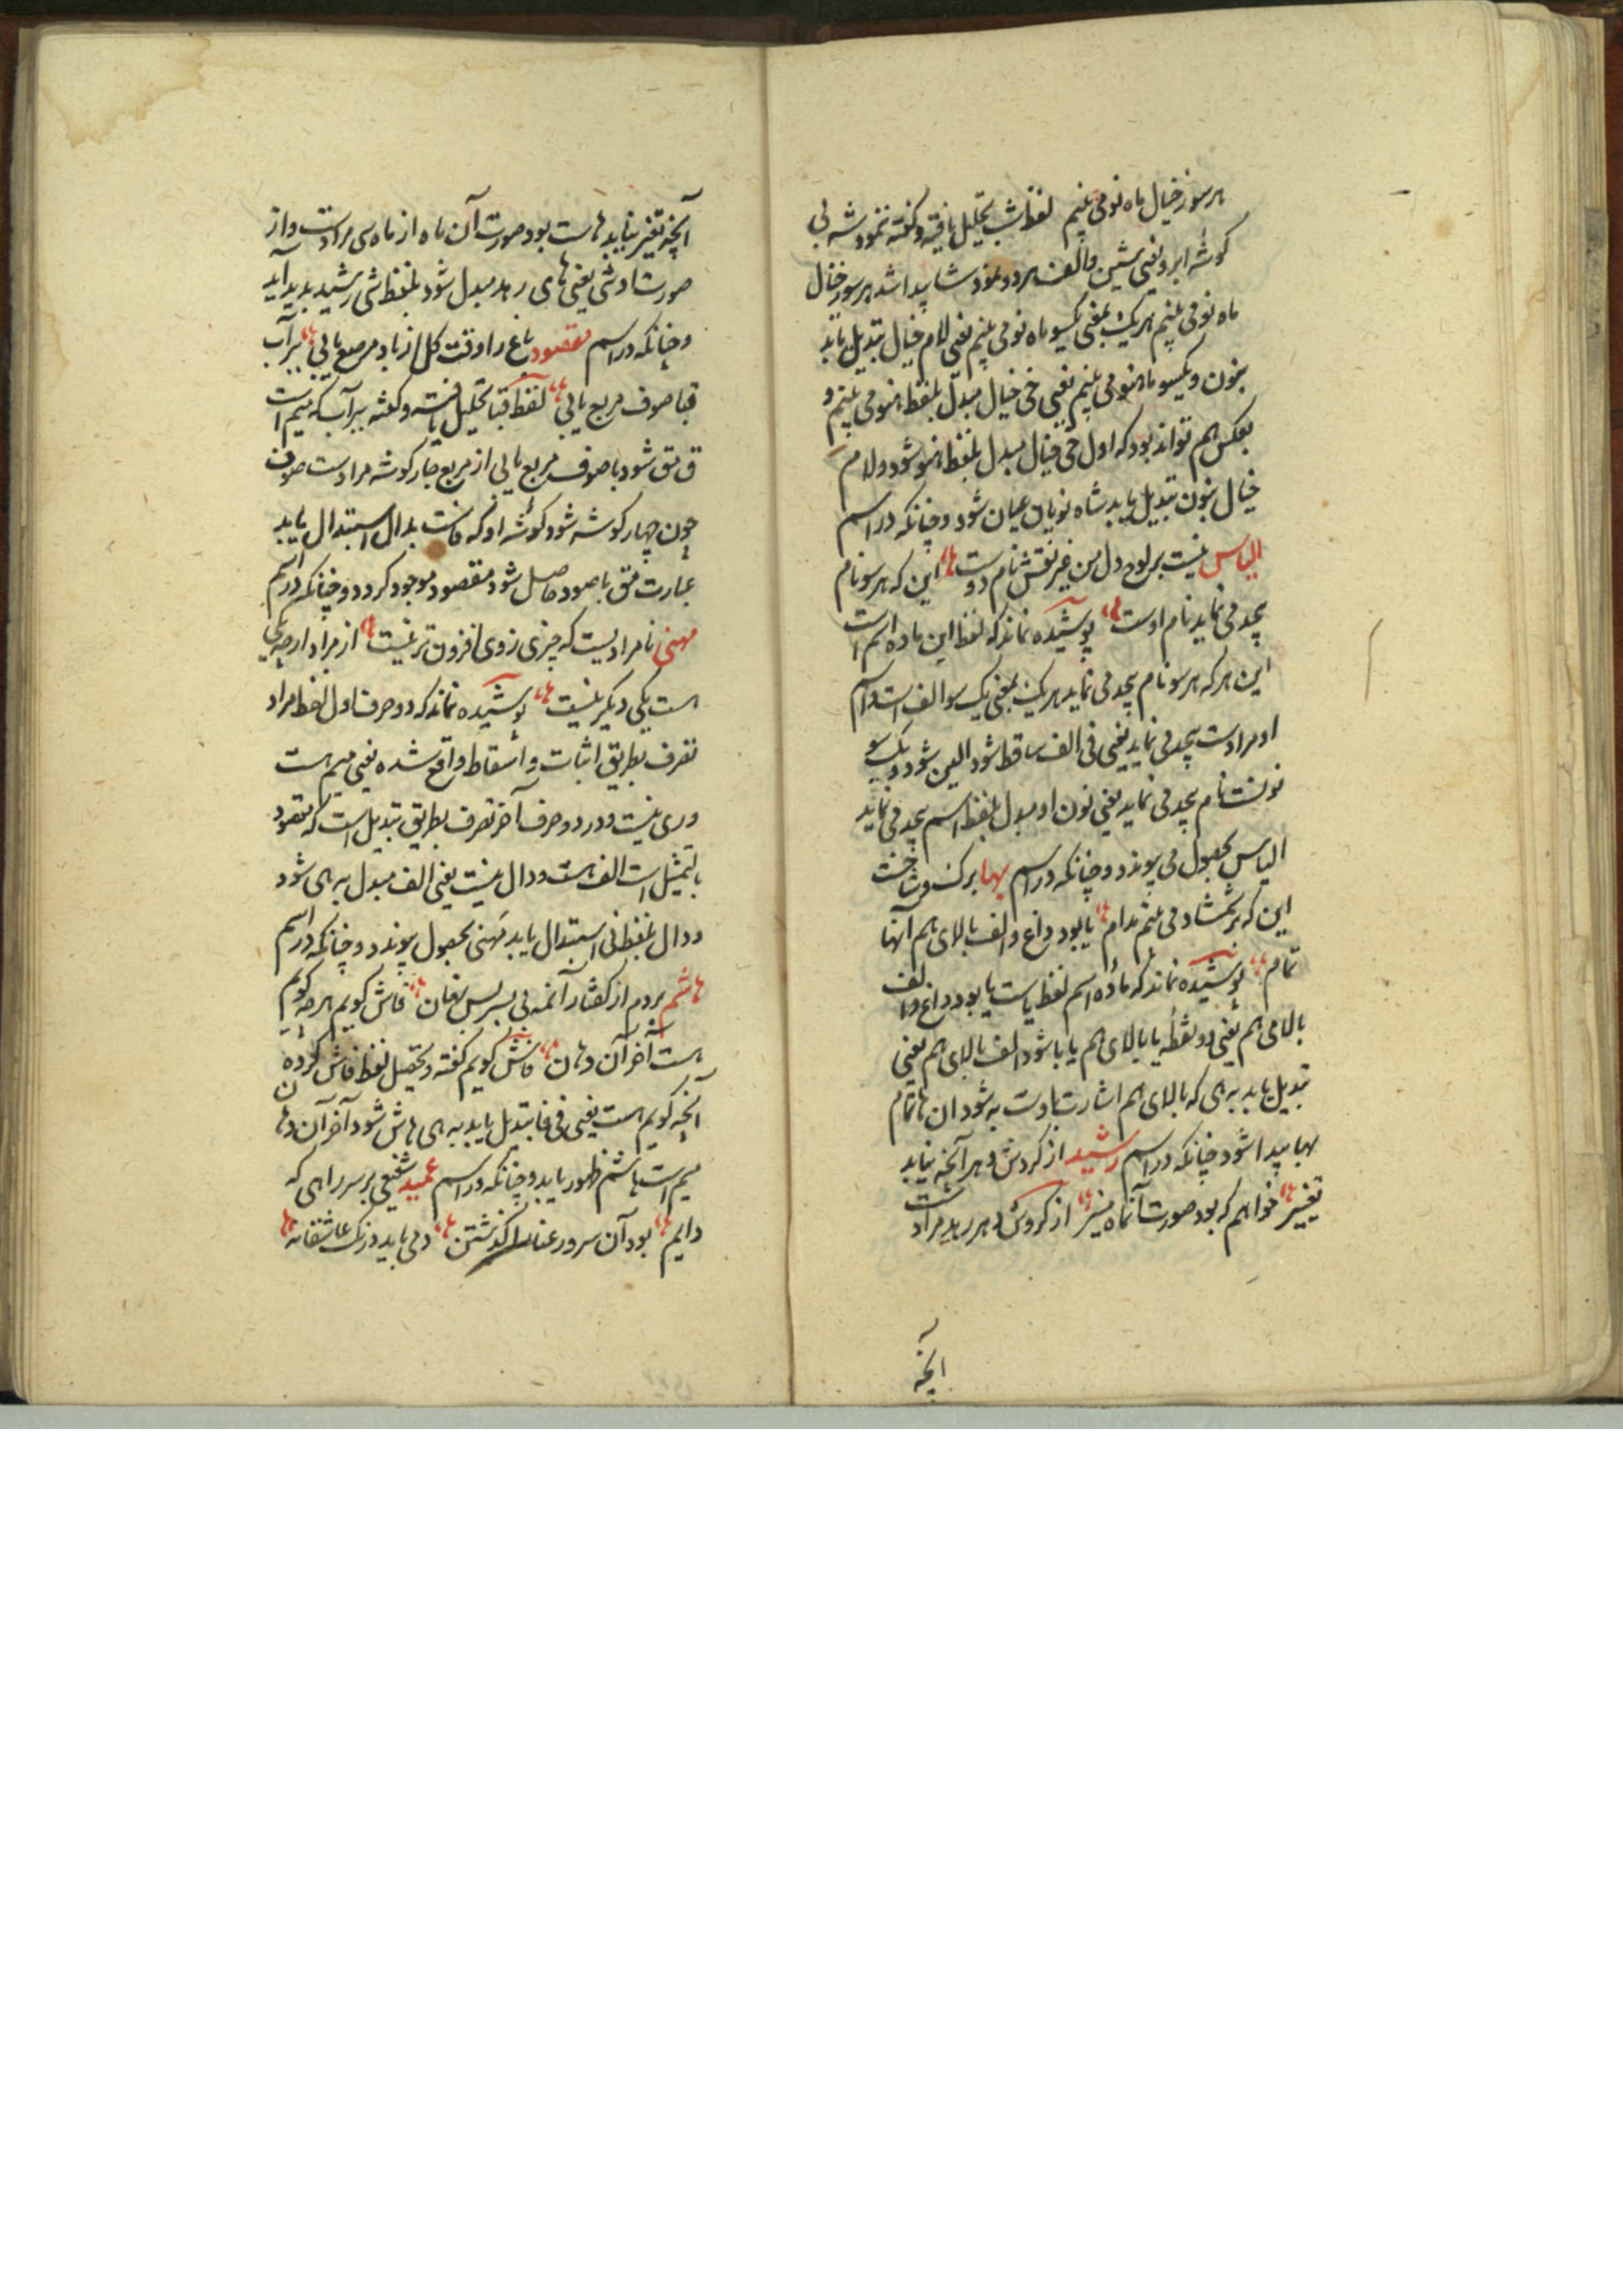 هر سو ز خیال ماه نو می بینم لفظ شب تحلیل یافته و گفته نمود شه بی
گوشه ابرو یعنی شین و الف هر دو نمود شا پیدا شد هر سو ز خیال
ماه نو می بینم هر یک یعنی یکسو ماه نو می بینم یعنی لام خیال تبدیل یابد
بنون و یکسو ماه نو می بینم یعنی خی خیال مبدل بلفظ نو می بینم و
بعکس هم تواند بود که اول خی خیال مبدل بلفظ نو شود و لام
خیال بنون تبدیل یابد شاه نویان عیان شود و چنانکه در اسم
الیاس نیست بر لوح دل من غیر نقش نام دوست این که هر سو نام
بیحد می نماید نام اوست پوشیده نماند که لفظ این ماده اسم است
این هر که هر سو نام بیحد می نماید هر یک یعنی یک سو الف است و اسم
او مرادست بیحد می نماید یعنی فی الف ساقط شود الین شود و یک سو
نونست نام بیحد می نماید یعنی نون او مبدل بلفظ اسم بیحد می نماید
الیاس بحصول می پیوندد و چنانکه در اسم بها بر کف و شاخت
این که بر شمشاد می بینم مدام یا بود داغ و الف بالای هم آنها
تمام پوشیده نماند که ماده اسم لفظ یاست یا بود داغ و الف
بالای هم یعنی دو نقطه یا بالای هم یا با شود الف بالای هم یعنی
تبدیل یابد به ه‍ی که بالای هم اشارت باوست به شود ان ها تمام
بها پیدا شود چنانکه در اسم رشید از گردش دهر آنچه نیابد
تغییر خواهم که بود صورت آنماه منیر از گردش دهر رهد مرادست
آنچه
آنچه تغیر نیابد هاست بود صورت آن ماه از ماه سی مرادست و از
صورت او شی یعنی های رهد مبدل شود بلفظ شی رشید پدید آید
و چنانکه در اسم مقصود باغ را وقت گل از باد مرصع یابی بر آب
قبا صوف مربع یابی لفظ قبا تحلیل یافته و گفته بر آب که میم است
ق مق شود با صوف مربع یابی از مربع چار گوشه مرادست صوف
چون چهار گوشه شود گوشه او که فاست بدال استبدال یابد
عبارت مق با صود حاصل شود مقصود موجود گردد و چنانکه در اسم
مهنی نامرادیست که چیزی زوی افزون تر نیست از مراد ار چه یکی
هست یکی دیگر نیست پوشیده نماند که دو حرف اول لفظ مراد
تصرف بطریق اثبات و اسقاط واقع شده یعنی میم هست
و ری نیست و در دو حرف آخر تصرف بطریق تبدیل است که مقصود
بالتمثیل است الف هست و دال نیست یعنی الف مبدل به ه‍ی شود
و دال بلفظ نی استبدال یابد مهنی بحصول پیوندد و چنانکه در اسم
هاشم بردم از گفتار آنمه پی بسر بس نهان فاش گویم هر چه گویم
هست آخر آن دهان فاش گویم گفته و تحصیل لفظ فاش کرده
آنچه گویم هست یعنی فی فا تبدیل یابد به ه‍ی هاش شود آخر آن دهان
میم است هاشم ظهور یابد و چنانکه در اسم عمید شفیعی بر سر راهی که
دایم بود آن سرو رعنا را گذشتن دمی باید درنک عاشقانه